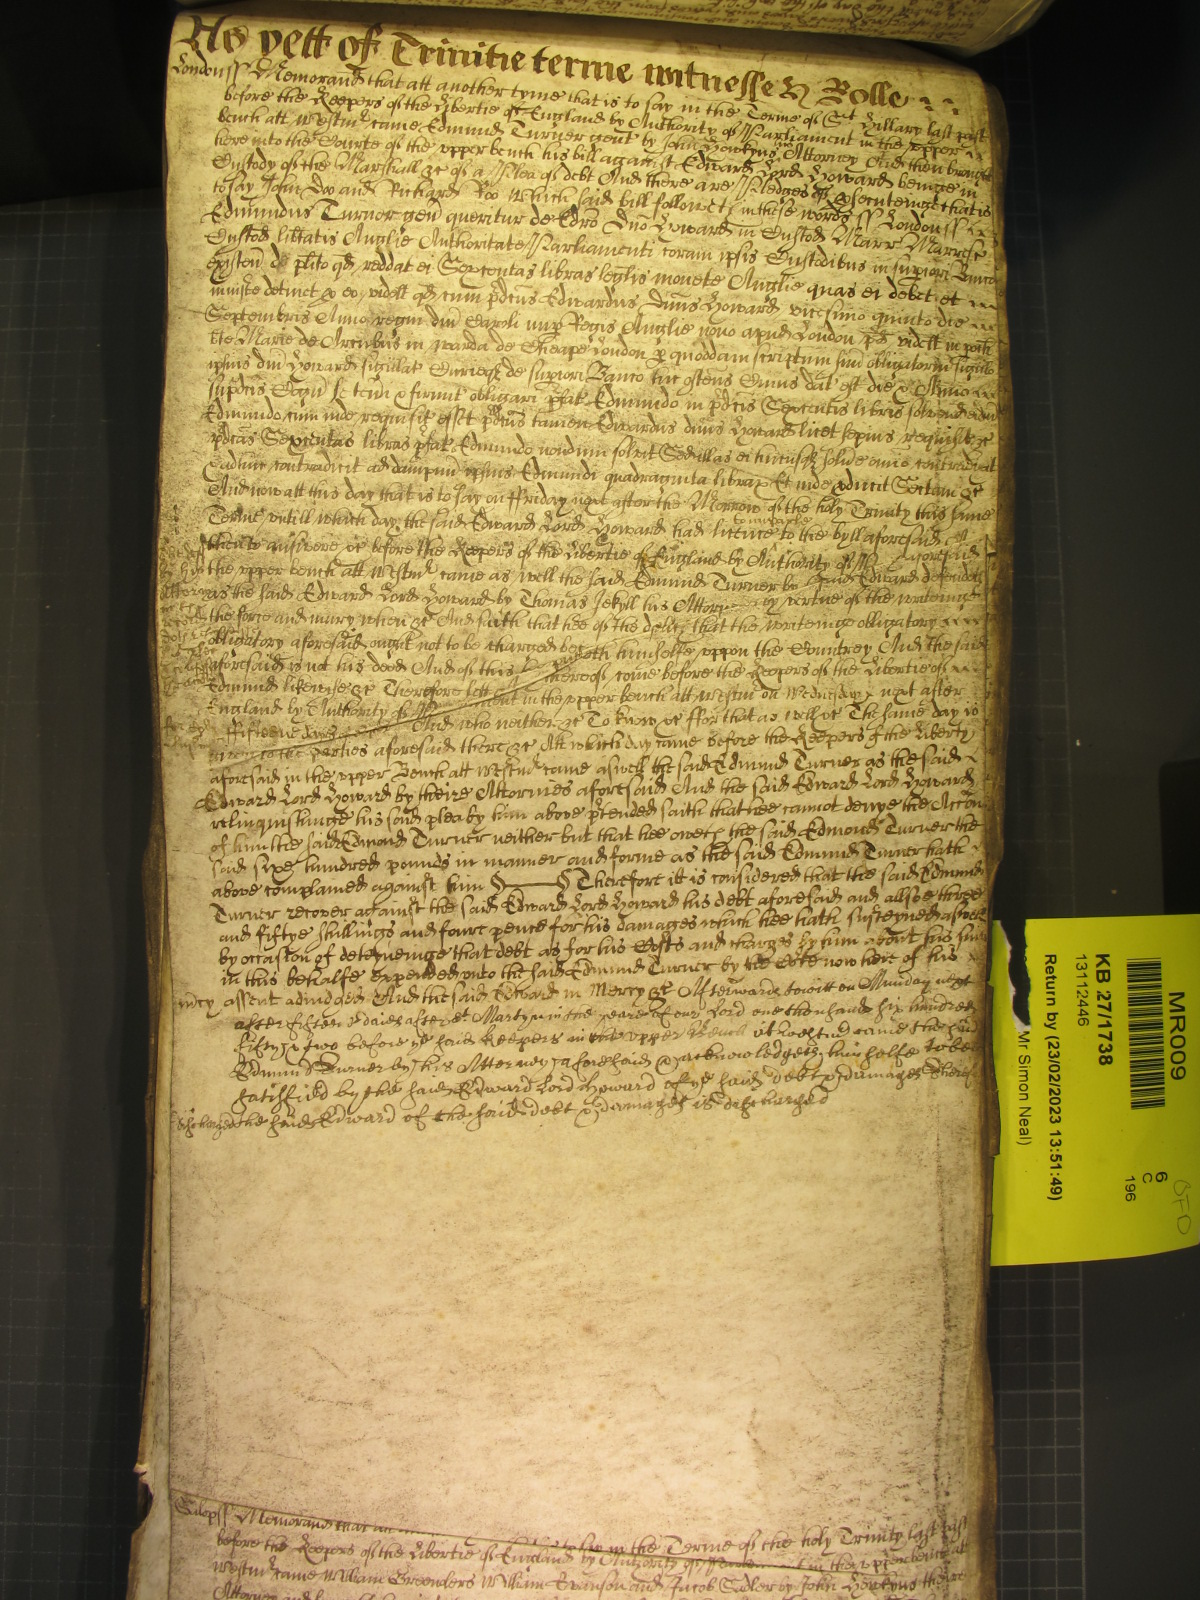 As yett of Trinitie terme witnesse H Rolle
Londonss Memorand that att another tyme that is to say in the Terme of St Hillary last past
before the Keepers of the libertie of England by Authority of Parliament in the upper
bench att Westmr came Edmund Turner gent by John Hawkyns his Attorney And then brought
here into the Courte of the upper bench his bill against Edward Lord Howard beinge in
Custody of the Marshall &c of a Plea of debt And there are Pledges of prosecuteinge that is
to say John Doo and Richard Roo which said bill followeth in these words ss Londonss
Edmundus Turnor gen queritur de Edro Dno Howard in Custod Marr Marresc
Custod libtatis Anglie Authoritate Parliamenti coram ipsis Custodibus in supiori Banco
existen de plito qd reddat ei Sexcentas libras leglis monete Anglie quas ei debet et
iniuste detinet p eo videlt qd cum pdcus Edwardus Dnus Howard vicesimo quinto die
Septembris Anno regni dni Caroli nup Regis Anglie nono apud London pd videlt in poch
Ste Marie de Arcubus in warda de Cheape London p quoddam scriptum suu obligatorm sigillo
ipius dni Howard sigillat Curieqz de supiori Banco hic ostens Cuius dat est die & Anno
supdcis Cogn se teni & firmit obligari pfat Edmundo in pdcis Sexcentis libris solvend eidm
Edmundo cum inde requisit esst pdcus tamen Edwardus dnus Howard licet sepius requisit &c
pdcas Sexcentas libras pfat Edmundo nondum solvit Sed illas ei hucusqz solve omio contradixit
& adhuc contradicit ad dampnu ipsius Edmundi quadraginta librar Et inde producit Sectam &c
And now att this day that is to say on ffriday next after the Morrow of the holy Trinity this same
Terme untill which day the said Edward Lord Howard had licence to the byll aforesaid
to imparle
then to answere &c before the Keepers of the libertie of England by Authority of
in the upper bench att Westmr came as well the said Edmund Turner by Attorney aforesaid
as the said Edward Lord Howard by Thomas Jekyll his Attorney And the said Edward defendeth
the force and iniury when &c And saith that hee of the debt aforesaid by vertue of the writeinge
obligatory aforesaid ought not to be charged because that the writeinge obligatory
aforesaid is not his deed And of this putteth himselfe uppon the Countrey And the said
Edmund likewise &c Therefore lett thereof come before the Keepers of the libertie of
England by Authority of Parliament in the upper bench att Westmr on Wednesday next after
ffifteene dayes And who neither &c To know &c ffor that as well &c The same day is
given to the parties aforesaid there &c Att which day came before the Keepers of the liberty
aforesaid in the upper Bench att Westmr came aswell the said Edmund Turner as the said
Edward Lord Howard by theire Attornies aforesaid And the said Edward Lord Howard
relinquishinge his said plea by him above pretended saith that hee cannot denye the Accon
of him the said Edmond Turner neither but that hee oweth the said Edmond Turner the
said sixe hundred pounds in manner and forme as the said Edmund Turner hath
above complained against him Therefore it is considered that the said Edmund
Turner recover against the said Edward Lord Howard his debt aforesaid and allsoe three
and fiftye shillings and foure pence for his damages which hee hath susteyned aswell
by occasion of deteyneinge that debt as for his Costs and charges by him about his suit
in this behalfe expended unto the said Edmund Turner by the Court now here of his
mcy assent adiudged And the said Edward in Mercy &c Afterwards towitt on Munday next
after fifteene daies after St Martyn in the yeare of our Lord one thousand six hundred
fifty & two before ye said Keepers in the upper Bench at Westmr came the said
Edmund Turner by his Attorney aforesaid & acknowledgeth him selfe to bee
satisfied by the said Edward Lord Howard of ye said debt & damages Therefore
discharged the said Edward of the said debt & damages is discharged
Salopss Memorand that att to say in the Terme of the holy Trinity last past
before the Keepers of the libertie of England by Authority of Parliament in the upper bench att
Westmr came William Greenders William Evanson and Jacob Sadler by John Hawkyns theire
Attorney and
MR009
KB 27/1738
13112446
Return by (23/02/2023 13:51:49)
Mr Simon Neal)
6
C
196
OFD